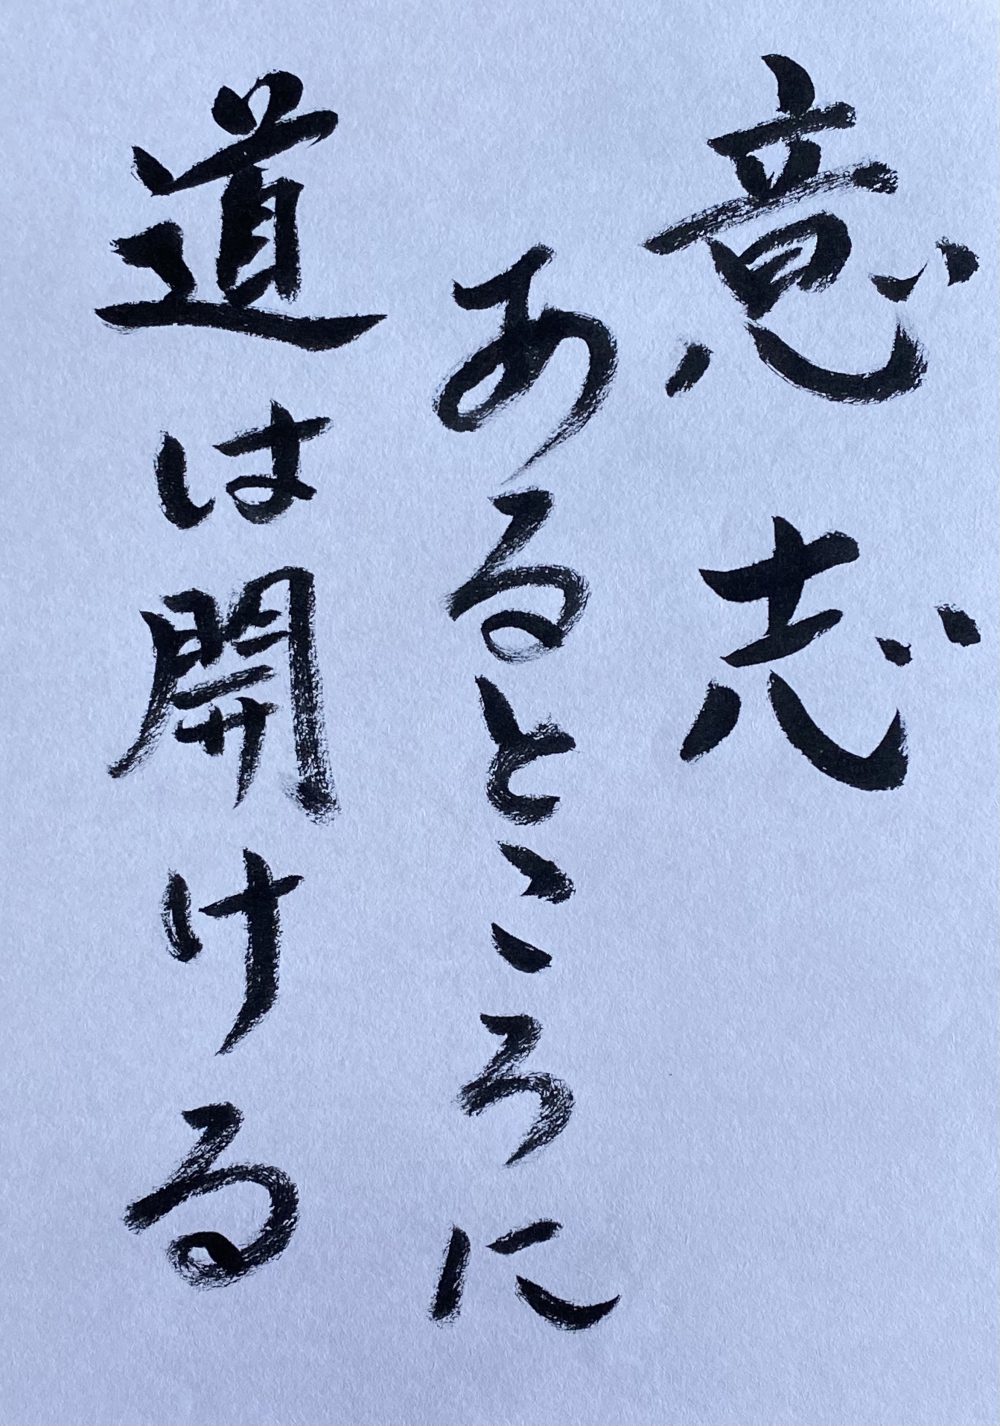 意志
あるところに
道は開ける